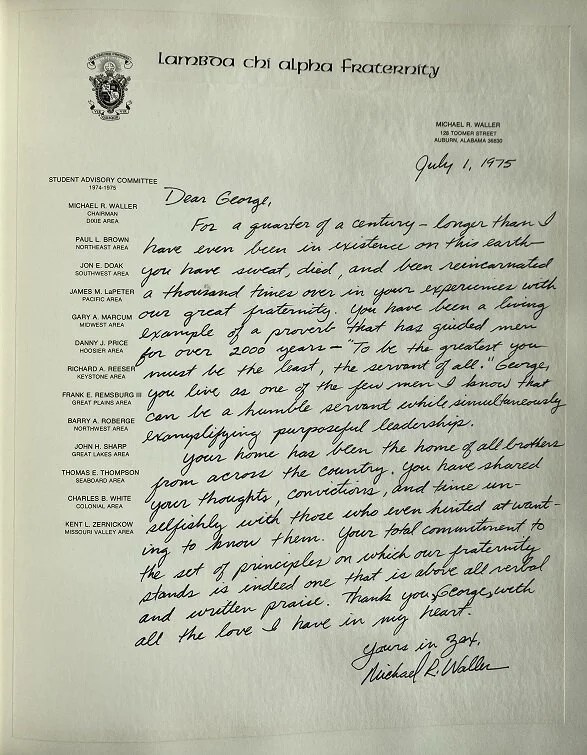 Lambda Chi Alpha Fraternity
MICHAEL R. WALLER
128 TOOMER STREET
AUBURN, ALABAMA 36830
July 1, 1975
STUDENT ADVISORY COMMITTEE
1974-1975
MICHAEL R. WALLER
CHAIRMAN
DIXIE AREA
PAUL L. BROWN
NORTHEAST AREA
JON E. DOAK
SOUTHWEST AREA
JAMES M. LaPETER
PACIFIC AREA
GARY A. MARCUM
MIDWEST AREA
DANNY J. PRICE
HOOSIER AREA
RICHARD A. REESER
KEYSTONE AREA
FRANK E. REMSBURG III
GREAT PLAINS AREA
BARRY A. ROBERGE
NORTHWEST AREA
JOHN H. SHARP
GREAT LAKES AREA
THOMAS E. THOMPSON
SEABOARD AREA
CHARLES B. WHITE
COLONIAL AREA
KENT L. ZERNICKOW
MISSOURI VALLEY AREA
Dear George,
For a quarter of a century – longer than I
have even been in existence on this earth –
you have sweat, died, and been reincarnated
a thousand times over in your experiences with
our great fraternity. You have been a living
example of a proverb that has guided men
for over 2000 years – "To be the greatest you
must be the least, the servant of all." George,
you live as one of the few men I know that
can be a humble servant while simultaneously
examplifying purposeful leadership.
Your home has been the home of all brothers
from across the country. You have shared
your thoughts, convictions, and time un-
selfishly with those who even hinted at want-
ing to know them. Your total commitment to
the set of principles on which our fraternity
stands is indeed one that is above all verbal
and written praise. Thank you, George, with
all the love I have in my heart.
Yours in Zax,
Michael R. Waller